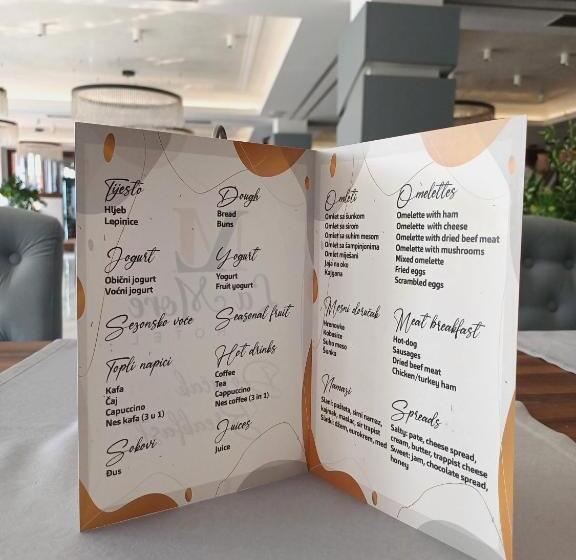 Tijesto
Hljeb
Lepinice
Jogurt
Obični jogurt
Voćni jogurt
Sezonsko voće
Topli napici
Kafa
Čaj
Capuccino
Nes kafa (3 u 1)
Sokovi
Đus
Dough
Bread
Buns
Yogurt
Yogurt
Fruit yogurt
Seasonal fruit
Hot drinks
Coffee
Tea
Cappuccino
Nes coffee (3 in 1)
Juices
Juice
Omleti
Omlet sa šunkom
Omlet sa sirom
Omlet sa suhim mesom
Omlet sa šampinjonima
Omlet miješani
Jaja na oko
Kajgana
Mesni doručak
Hrenovke
Kobasice
Suho meso
Šunka
Namazi
Slani: pašteta, sirni namaz,
kajmak, maslac, sir trapist
Slatki: džem, eurokrem, med
Omelettes
Omelette with ham
Omelette with cheese
Omelette with dried beef meat
Omelette with mushrooms
Mixed omelette
Fried eggs
Scrambled eggs
Meat breakfast
Hot-dog
Sausages
Dried beef meat
Chicken/turkey ham
Spreads
Salty: pate, cheese spread,
cream, butter, trappist cheese
Sweet: jam, chocolate spread,
honey